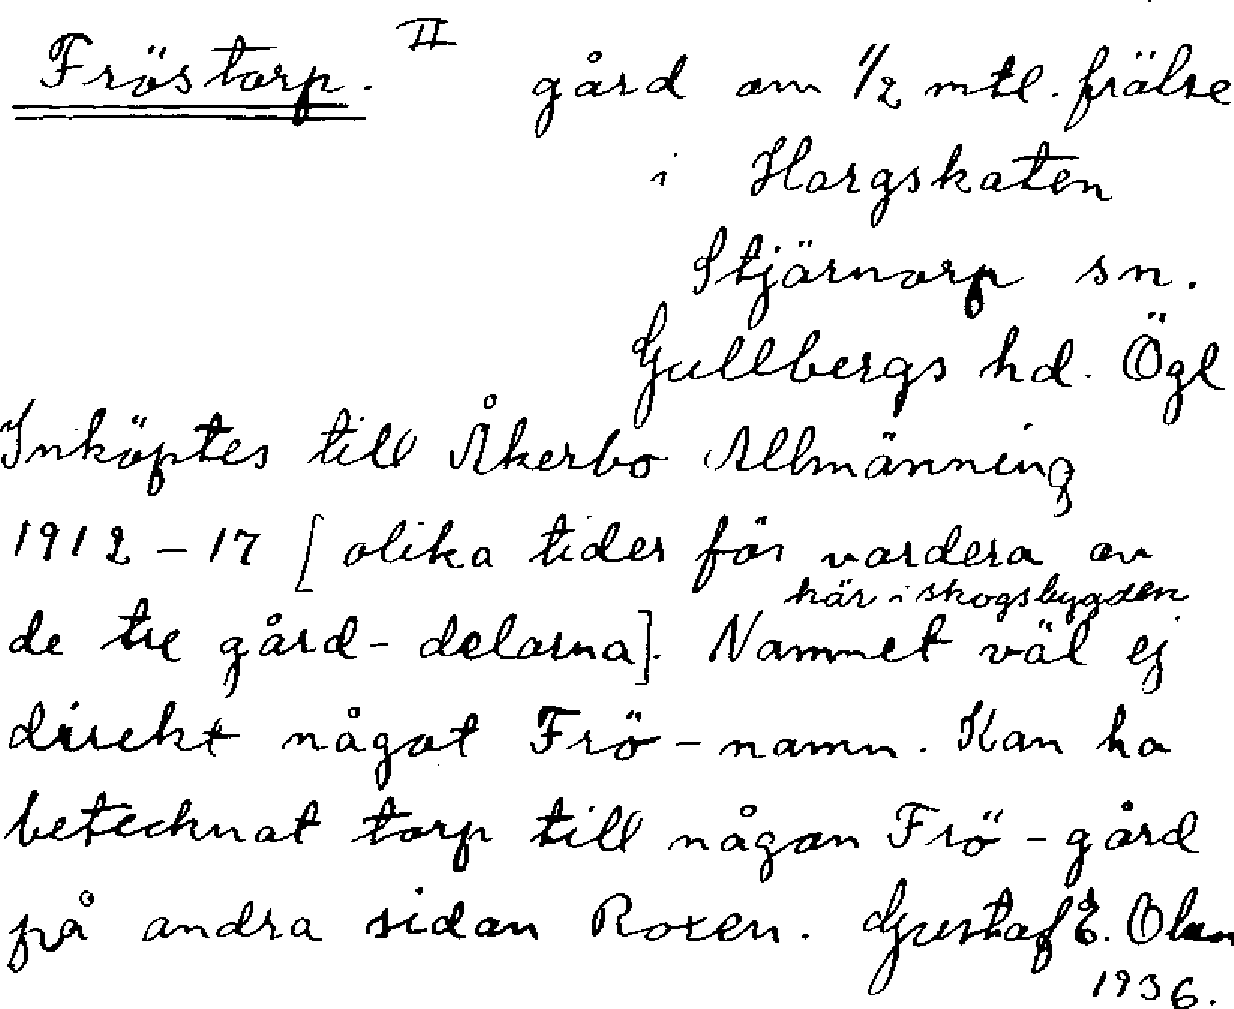 Fröstorp. II gård om 1/2 mtl. frälse
i Hargskaten
Stjärnorp sn.
Gullbergs hd. Ögl
Inköptes till Åkerbo Allmänning
1912-17 [olika tider för vardera av
här i skogsbygden
de tre gård-delarna]. Namnet väl ej
direkt något Frö-namn. Kan ha
betecknat torp till någon Frö-gård
på andra sidan Roxen. Gustaf E. Olsson
1936.